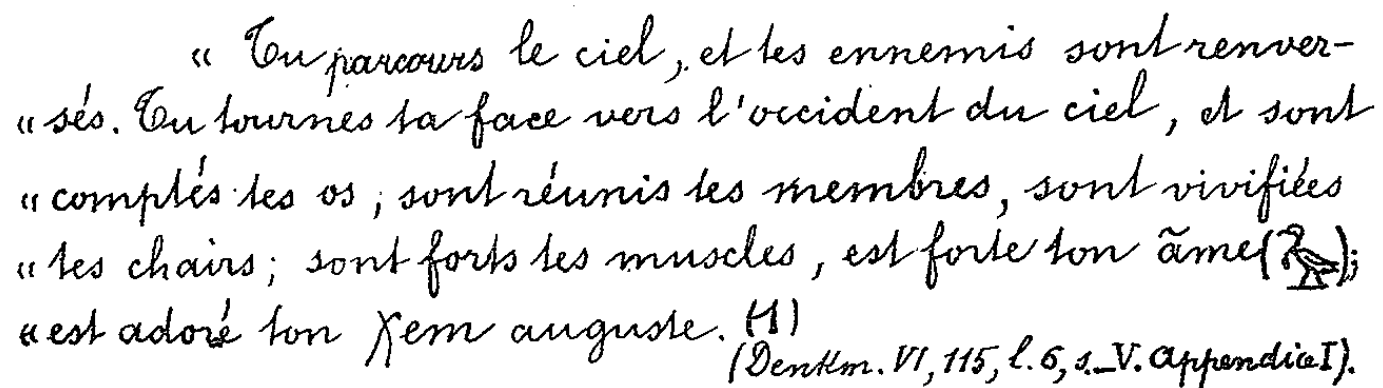 « Tu parcours le ciel, et tes ennemis sont renver-
« sés. Tu tournes ta face vers l'occident du ciel, et sont
« comptés tes os ; sont réunis tes membres, sont vivifiées
« tes chairs ; sont forts tes muscles, est forte ton âme (𓅡);
« est adoré ton χem auguste. (1)
(Denkm. VI, 115, l. 6, s._V. Appendice I).